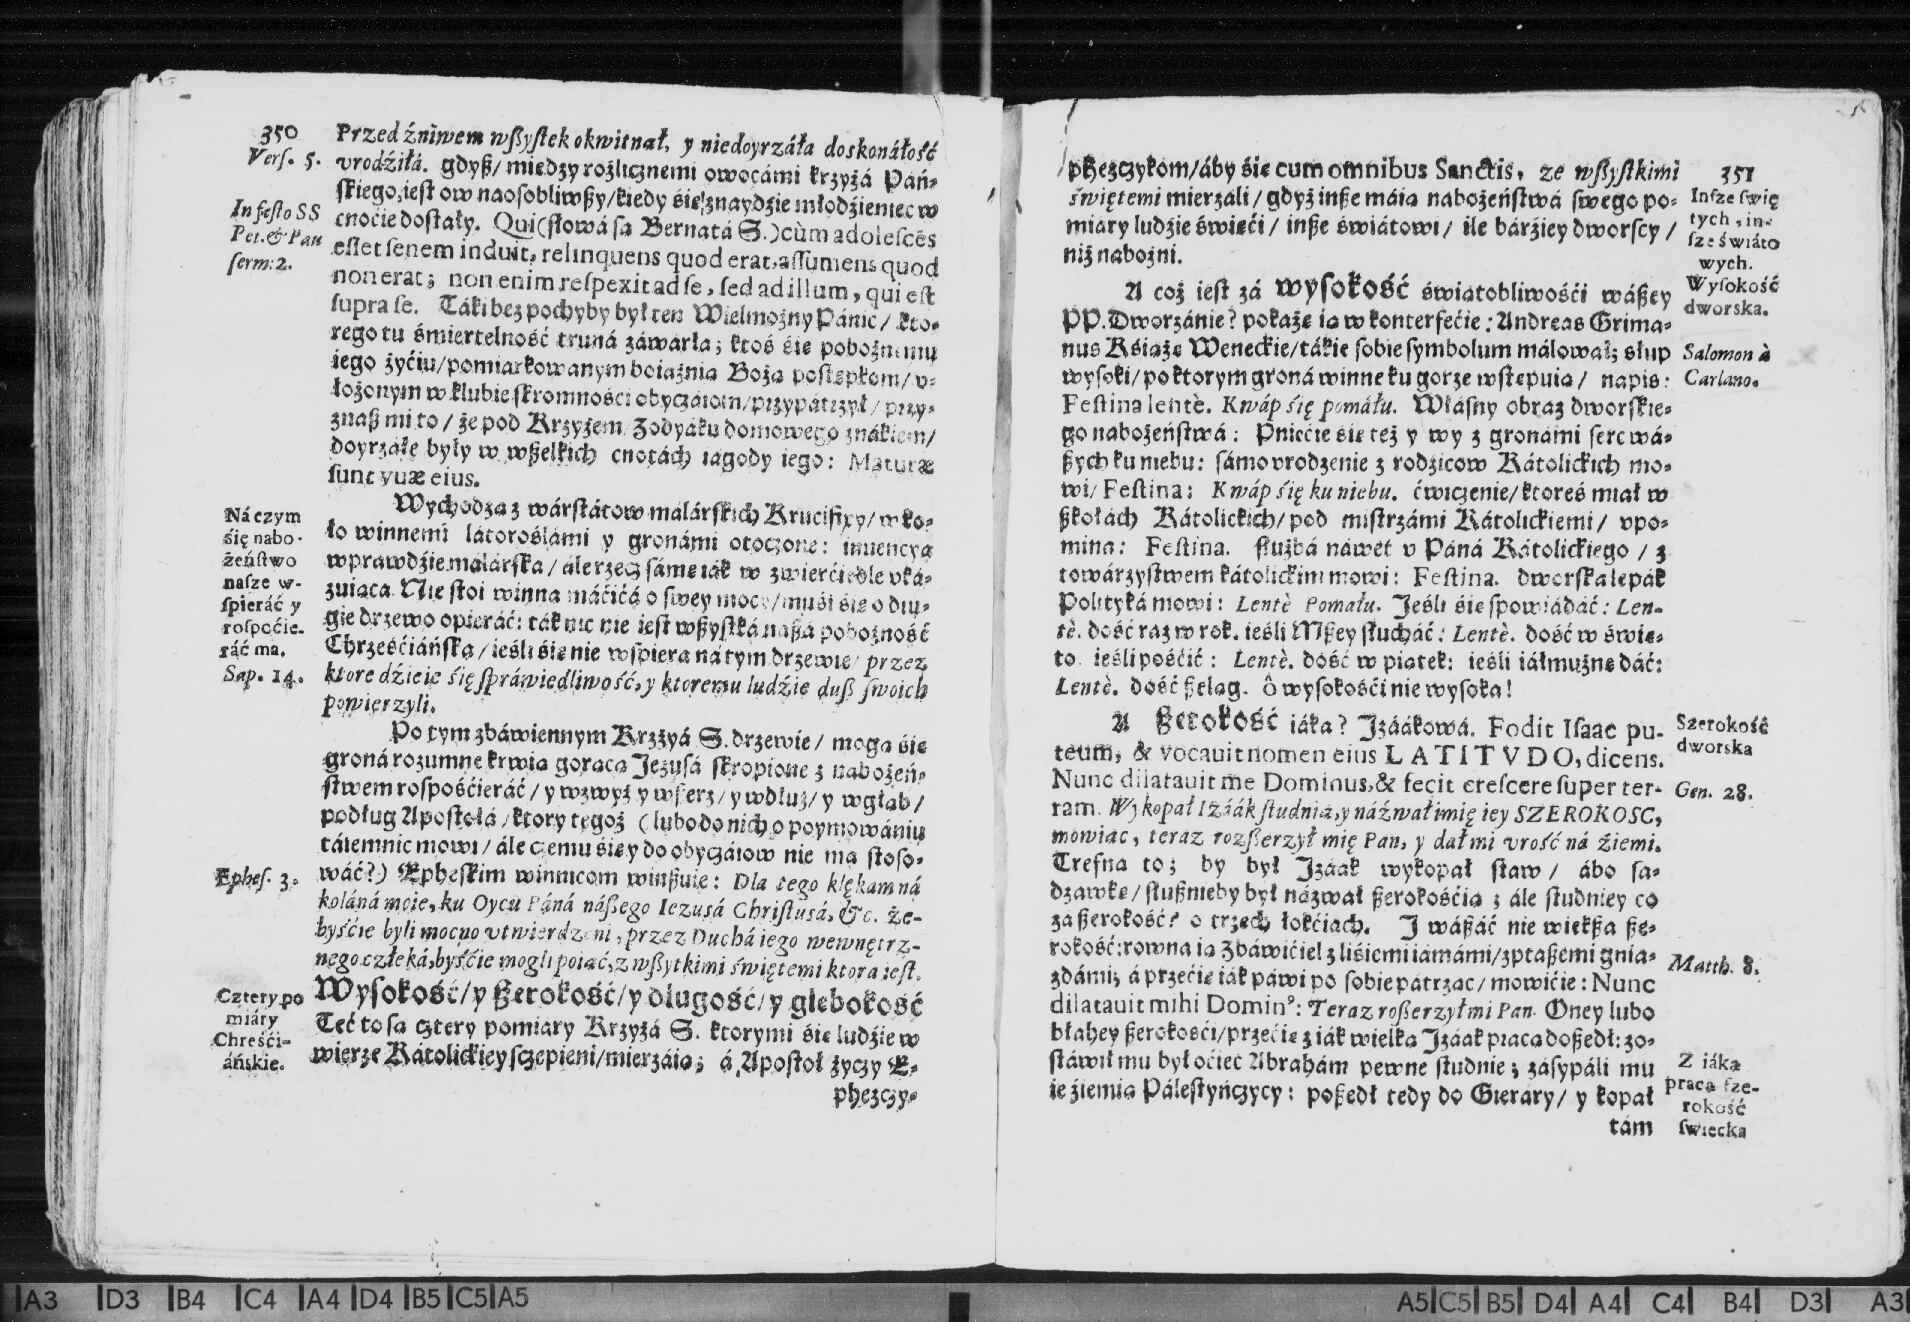 350
Vers. 5.
In festo SS
Pet. & Pau
serm: 2.
Ná czym
się nabo-
żeństwo
nasze w-
spieráć y
rospośćie-
ráć ma.
Sap. 14.
Ephes. 3.
Cztery po
miáry
Chreśći-
áńskie.
Przed źniwem wßystek okwitnał, y niedoyrzáła doskonáłość
vrodźiłá. gdyß/ miedzy rożlicznemi owocámi krzyżá Páń-
skiego, iest ow naosobliwßy/ kiedy śie znaydzie młodźieniec w
cnoćie dostáły. Qui (słowá sa Bernatá S.) cùm adolescẽs
esset senem induit, relinquens quod erat, assumens quod
non erat; non enim respexit ad se, sed ad illum, qui est
supra se. Táki bez pochyby był ten Wielmożny Pánic/ kto-
rego tu śmiertelność truná záwárła; ktoś śie pobożnemu
iego żyćiu/ pomiarkowanym boiaźnia Boża postępkom/ v-
łożonym w klubie skromnośći obyczáiom/ przypátrzył/ przy-
znaß mi to/ że pod Krzyżem Zodyáku domowego znákiem/
doyrzáłe były w wßelkich cnotách iagody iego: Maturæ
sunt vuæ eius.
Wychodza z wárstátow malárskich Krucifixy/ w ko-
ło winnemi látoroślámi y gronámi otoczone: inuencya
wprawdźie malárska/ ále rzecz sáme iák w zwierćiedle vká-
zuiaca. Nie stoi winna máćicá o swey mocy/ muśi śie o dru-
gie drzewo opieráć: ták nic nie iest wßystká náßá pobożność
Chrześćiáńska/ ieśli śie nie wspiera ná tym drzewie/ przez
ktore dźieie się spráwiedliwość, y ktoremu ludźie duß swoich
powierzyli.
Po tym zbáwiennym Krzżyá S. drzewie/ moga śie
groná rozumne krwia goraca Jezusá skropione z nabożeń-
stwem rospośćieráć/ y wzwyż y wßerz/ y wdłuż/ y wgłab/
podług Apostołá/ ktory tegoż (lubo do nich o poymowániu
táiemnic mowi/ ále czemu śie y do obyczáiow nie ma stoso-
wáć?) Epheskim winnicom winßuie: Dla tego klękam ná
koláná moie, ku Oycu Páná náßego Iezusá Christusá, &c. że-
byśćie byli mocno vtwierdzeni, przez Duchá iego wewnętrz-
nego człeká, byśćie mogli poiać, z wßytkimi świętemi ktora iest.
Wysokość/ y ßerokość/ y długość/ y głebokość
Teć to sa cztery pomiary Krzyżá S. ktorymi śie ludźie w
wierze Kátolickiey sczepieni/ mierzáia; á Apostoł życzy E-
phezczy-
phezczykom/ áby śie cum omnibus Sanctis, ze wßystkimi
świętemi mierzáli/ gdyż inße máia nabożeństwá swego po-
miary ludźie święći/ inße świátowi/ ile bárźiey dworscy/
niż nabożni.
A coż iest zá wysokość świątobliwośći wáßey
PP. Dworzánie? pokaże ia w konterfećie: Andreas Grima-
nus Ksiaże Weneckie/ tákie sobie symbolum málował; słup
wysoki/ po ktorym groná winne ku gorze wstepuia/ napis:
Festina lentè. Kwáp się pomáłu. Własny obraz dworskie-
go nabożeństwá: Pniećie śie też y wy z gronámi serc wá-
ßych ku niebu: sámo vrodzenie z rodzicow Kátolickich mo-
wi/ Festina: Kwáp się ku niebu. ćwiczenie/ ktoreś miał w
ßkołách Kátolickich/ pod mistrzámi Kátolickiemi/ vpo-
mina: Festina. służbá náwet v Páná Kátolickiego/ z
towárzystwem kátolickim mowi: Festina. dworska lepák
Polityká mowi: Lentè Pomału. Jeśli śie spowiádáć: Len-
tè. dość raz w rok. ieśli Mßey słucháć: Lentè. dość w świe-
to. ieśli pośćić: Lentè. dość w piatek: ieśli iáłmużne dáć:
Lentè. dość ßelag. ô wysokośći nie wysoka!
A ßerokość iáka? Jzáákowá. Fodit Isaac pu-
teum, & vocauit nomen eius LATITVDO, dicens.
Nunc dilatauit me Dominus, & fecit crescere super ter-
ram. Wykopał Izáák studnia, y názwał imię iey SZEROKOSC,
mowiac, teraz rozßerzył mię Pan, y dał mi vrość ná źiemi.
Trefna to; by był Jzáak wykopał staw/ ábo sa-
dzawke/ słußnieby był názwał ßerokośćia; ále studniey co
za ßerokość? o trzech łokćiach. J wáßáć nie wiekßa ße-
rokość: rowna ia Zbáwićiel z liśiemi iámámi/ z ptaßemi gnia-
zdámi; á przećie iák páwi po sobie pátrzac/ mowićie: Nunc
dilatauit mihi Dominꝰ: Teraz roßerzył mi Pan. Oney lubo
błahey ßerokośći/ przećie z iák wielka Jzáak praca doßedł: zo-
stáwił mu był oćiec Abrahám pewne studnie; zásypáli mu
ie źiemia Pálestyńczycy: poßedł tedy do Gierary/ y kopał
tám
351
Insze swię
tych, in-
sze świáto
wych.
Wysokość
dworska.
Salomon à
Carlano.
Szerokość
dworska
Gen. 28.
Matth. 8.
Z iáka
praca sze-
rokość
swiecka
A3 D3 B4 C4 A4 D4 B5 C5 A5
A5 C5 B5 D4 A4 C4 B4 D3 A3